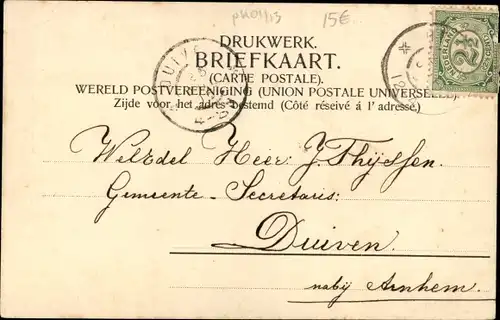 15€
DRUKWERK.
BRIEFKAART.
(CARTE POSTALE).
WERELD POSTVEREENIGING (UNION POSTALE UNIVERSELLE)
Zijde voor het adres bestemd (Côté réseivé á l'adresse.)
NEDERLAND
2½
WelEdel Heer J. Thijssen.
Gemeente-Secretaris:
Duiven.
nabij Arnhem.